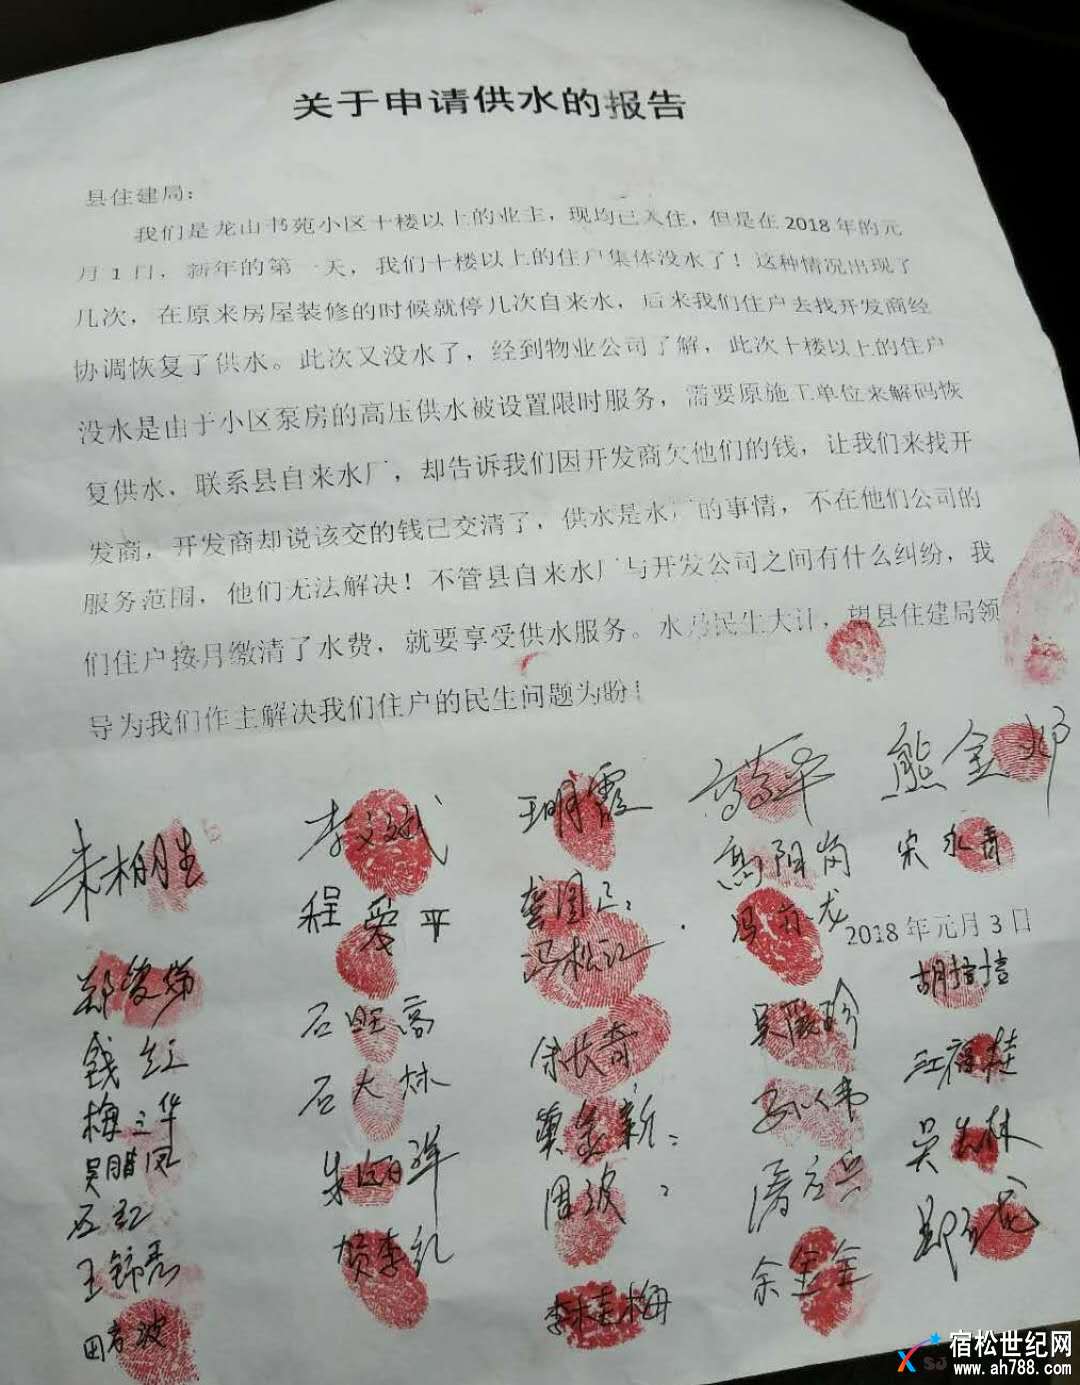 关于申请供水的报告
县住建局：
我们是龙山书苑小区十楼以上的业主，现均已入住，但是在2018年的元
月1日，新年的第一天，我们十楼以上的住户集体没水了！这种情况出现了
几次，在原来房屋装修的时候就停几次自来水，后来我们住户去找开发商经
协调恢复了供水。此次又没水了，经到物业公司了解，此次十楼以上的住户
没水是由于小区泵房的高压供水被设置限时服务，需要原施工单位来解码恢
复供水、联系县自来水厂，却告诉我们因开发商欠他们的钱，让我们来找开
发商，开发商却说该交的钱已交清了，供水是水厂的事情，不在他们公司的
服务范围，他们无法解决！不管县自来水厂与开发公司之间有什么纠纷，我
们住户按月缴清了水费，就要享受供水服务。水乃民生大计，望县住建局领
导为我们作主解决我们住户的民生问题为盼！
朱柏生 李文斌 王明霞 熊金邓
程爱平 龚国正 宋永青
冯松江
2018年元月3日
钱红 石旺高 余长青 胡培培
梅立华 石大林 江福桂
吴腊凤 周波 吴大林
王锦亮 李桂梅 余金全
田方波
宿松世纪网
www.ah788.com